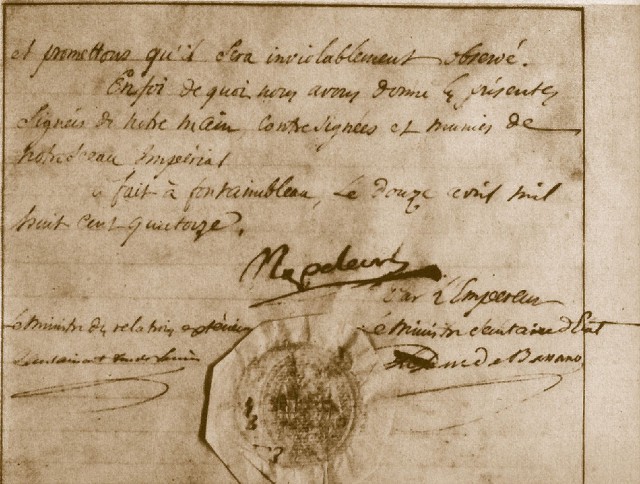 et promettons qu'il sera inviolablement observé.
En foi de quoi nous avons donné les présentes
signées de notre main contresignées et munies de
notre sceau Impérial
fait à fontainebleau, le douze avril mil
huit cent quatorze.
Napoleon
Par l'Empereur
Le Ministre des relations extérieures
le Ministre Secrétaire d'Etat
Caulaincourt duc de Vicence
Le Duc de Bassano